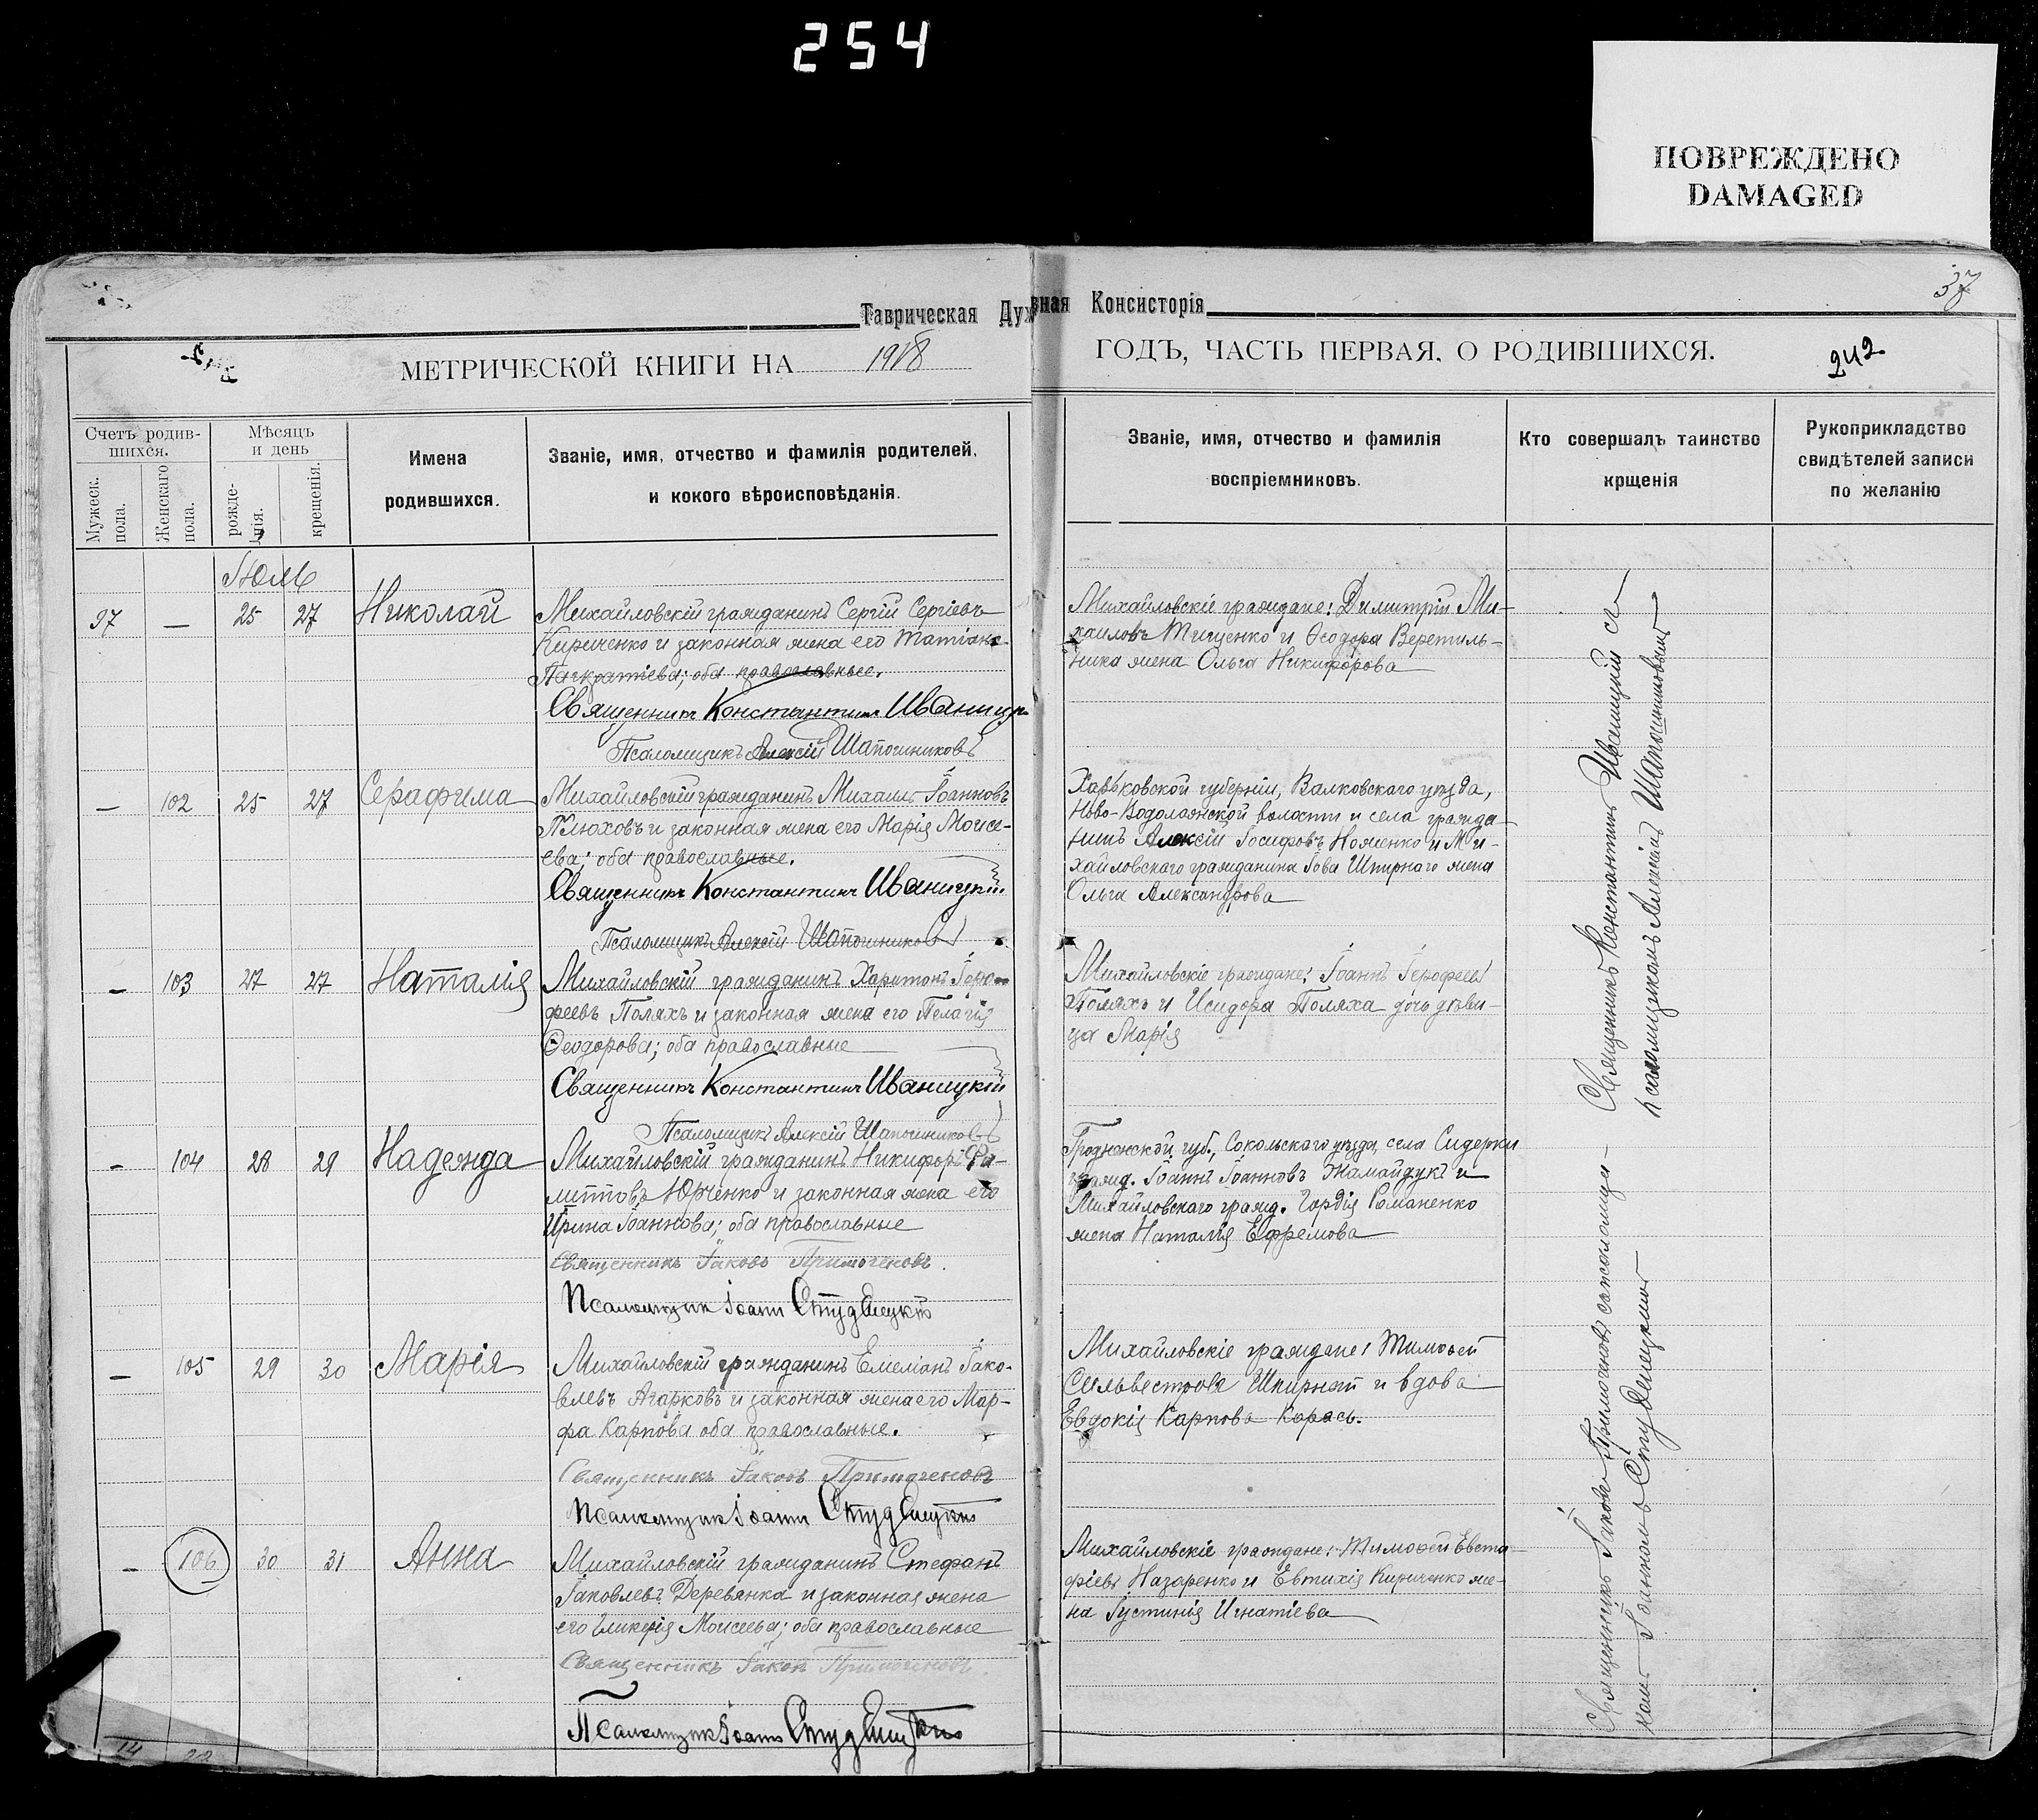 254
ПОВРЕЖДЕНО
DAMAGED
37
Таврическая Духовная Консисторія
МЕТРИЧЕСКОЙ КНИГИ НА 1918 ГОДЪ, ЧАСТЬ ПЕРВАЯ, О РОДИВШИХСЯ.
242
Счетъ родив-
шихся.
Мужеск.
пола.
Женскаго
пола.
Мѣсяцъ
и день
рожде-
нія.
крещенія.
Имена
родившихся.
Званіе, имя, отчество и фамилія родителей,
и кокого вѣроисповѣданія.
Званіе, имя, отчество и фамилія
воспріемниковъ.
Кто совершалъ таинство
крщенія
Рукоприкладство
свидѣтелей записи
по желанію
Іюль
97 — 25 27 Николай
Михайловскій гражданинъ Сергій Сергіевъ
Кириченко и законная жена его Татіана
Панкратіева; оба православные.
Священникъ Константинъ Иваницкій
Псаломщикъ Алексій Шапошниковъ
Михайловскіе граждане: Димитрій Ми-
хаиловъ Тищенко и Ѳеодора Веретиль-
ника жена Ольга Никифорова
— 102 25 27 Серафима
Михайловскій гражданинъ Михаилъ Іоанновъ
Плюховъ и законная жена его Марія Моисе-
ева; оба православные.
Священникъ Константинъ Иваницкій
Псаломщикъ Алексій Шапошниковъ
Харьковской губерніи, Валковского уѣзда,
Ново-Водолажской волости и села гражда-
нинъ Алексій Іосифовъ и Ми-
хайловского гражданина Іова Шпирнаго жена
Ольга Александрова
— 103 27 27 Наталія
Михайловскій гражданинъ Харитонъ Іеро-
феевъ Поляхъ и законная жена его Пелагія
Ѳеодорова; оба православные
Священникъ Константинъ Иваницкій
Псаломщикъ Алексій Шапошниковъ
Михайловскіе граждане: Іоаннъ Іерофеевъ
Поляхъ и Исидора Поляха дочь дѣви-
ца Марія
— 104 28 29 Надежда
Михайловскій гражданинъ Никифоръ
Юрченко и законная жена его
Ирина Іоаннова; оба православные
Священникъ Іаковъ Примоченовъ.
Псаломщик Іоанн Студенецкій
Гродненской губ., Сокольского уѣзда, села Сидерки
гражд. Іоаннъ Іоанновъ Жамайдукъ и
Михайловскаго гражд. Гордія Романенко
жена Наталія Ефремова
— 105 29 30 Марія
Михайловскій гражданинъ Емеліанъ Іако-
влевъ Агарковъ и законная жена его Мар-
фа Карпова оба православные.
Священникъ Іаковъ Примоченовъ
Псаломщик Іоанн Студенецкій
Михайловскіе граждане: Тимоѳей
Сильвестровъ Шпирный и вдова
Евдокія Карпова Карась.
— 106 30 31 Анна
Михайловскій гражданинъ Стефанъ
Іаковлевъ Деревянка и законная жена
его Гликерія Моисеева; оба православные
Священникъ Іаковъ Примоченовъ.
Псаломщик Іоанн Студенецкій
Михайловскіе граждане: Тимоѳей Евста-
фіевъ Назаренко и Евтихія Кириченко же-
на Іустинія Игнатіева
Священникъ Константинъ Иваницкій съ
псаломщикомъ Алексіемъ Шапошниковымъ
Священникъ Іаковъ Примоченовъ съ псаломщи-
комъ Іоанномъ Студенецкимъ
14 22